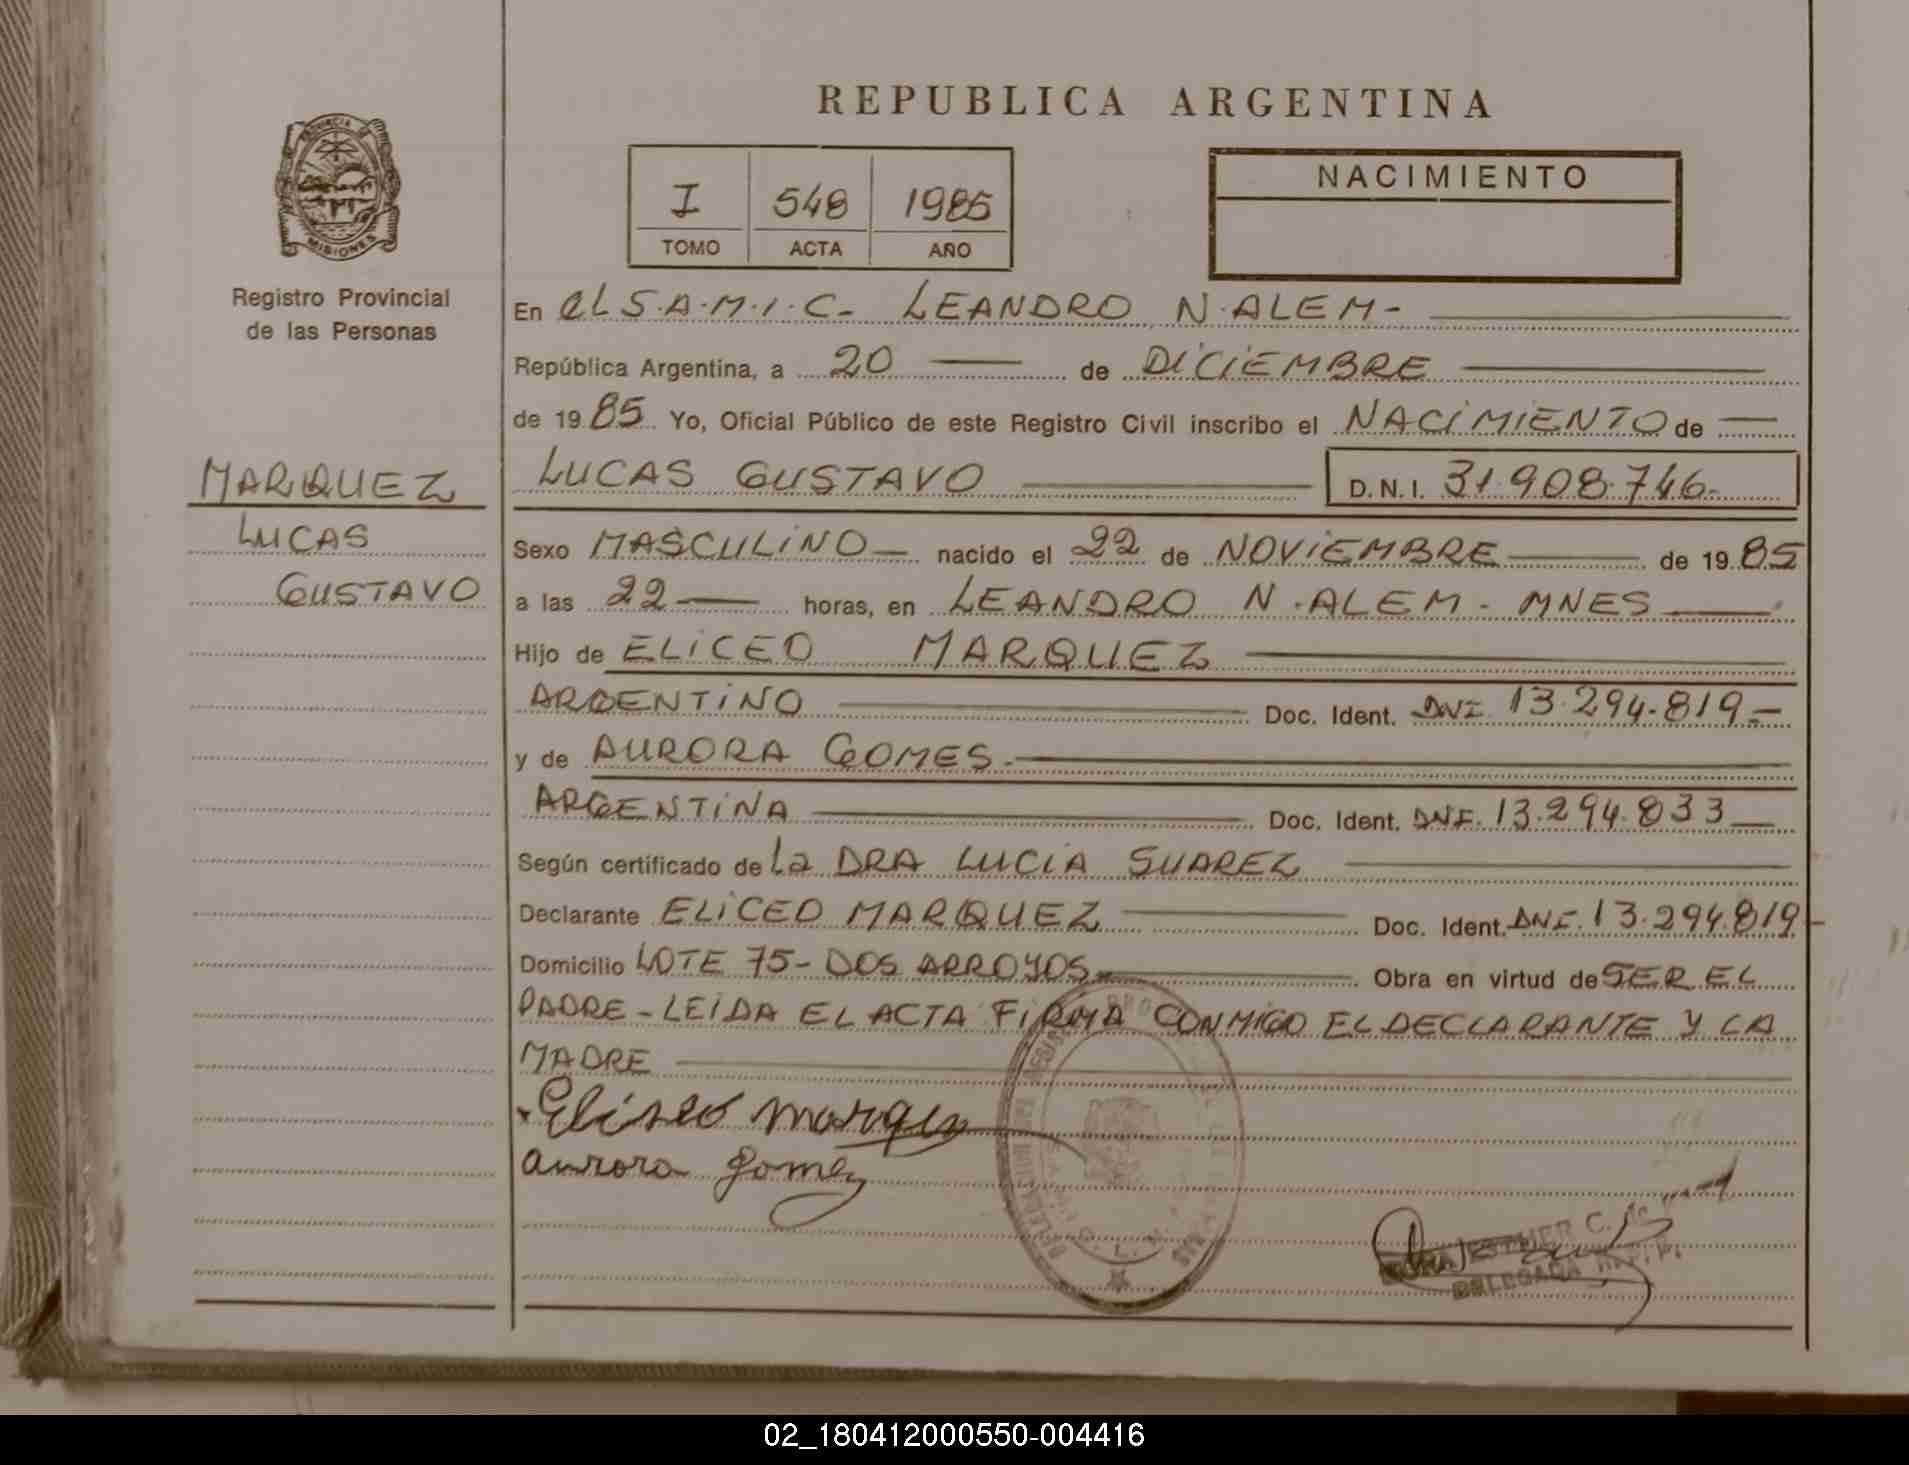 REPUBLICA ARGENTINA
PROVINCIA DE
MISIONES
Registro Provincial
de las Personas
I 548 1985
TOMO ACTA AÑO
NACIMIENTO
En el S.A.M.I.C- LEANDRO N. ALEM-
República Argentina, a 20 de DICIEMBRE
de 1985 Yo, Oficial Público de este Registro Civil inscribo el NACIMIENTO de
MARQUEZ
LUCAS
GUSTAVO
LUCAS GUSTAVO D.N.I. 31.908.746-
Sexo MASCULINO nacido el 22 de NOVIEMBRE de 1985
a las 22 horas, en LEANDRO N. ALEM- MNES
Hijo de ELICEO MARQUEZ
ARGENTINO Doc. Ident. DNI. 13.294.819-
y de AURORA GOMES-
ARGENTINA Doc. Ident. DNI. 13.294.833
Según certificado de La DRA LUCIA SUAREZ
Declarante ELICEO MARQUEZ Doc. Ident. DNI. 13.294.819-
Domicilio LOTE 75- DOS ARROYOS Obra en virtud de SER EL
PADRE- LEIDA EL ACTA FIRMA CONMIGO EL DECLARANTE Y LA
MADRE
Eliseo marques
aurora gomez
ESTHER C. de
DELEGADA
02_180412000550-004416